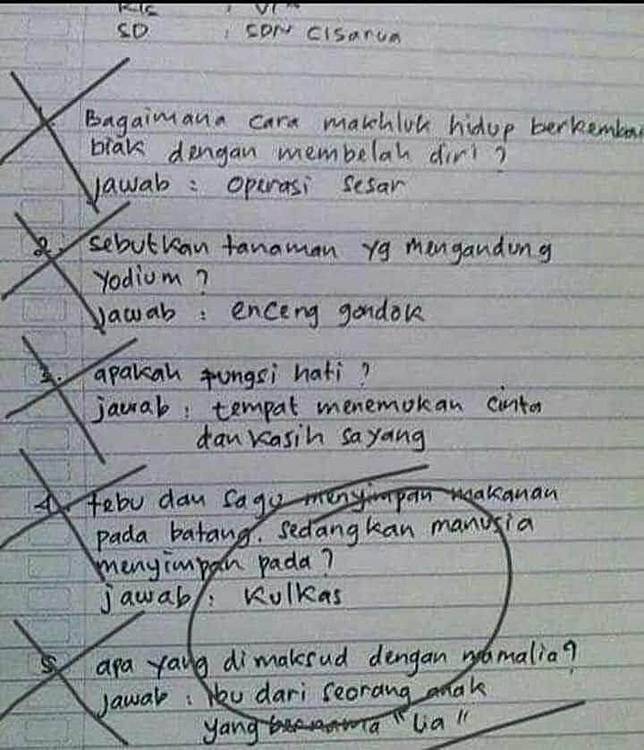 : VI A
SD : SDN Cisarua
Bagaimana cara makhluk hidup berkembai
biak dengan membelah diri ?
Jawab : operasi sesar
2. sebutkan tanaman yg mengandung
yodium ?
Jawab : enceng gondok
3. apakah fungsi hati ?
jawab : tempat menemukan cinta
dan kasih sayang
4. tebu dan sagu menyimpan makanan
pada batang. sedangkan manusia
menyimpan pada ?
jawab : kulkas
5. apa yang dimaksud dengan mamalia ?
Jawab : ibu dari seorang anak
yang bernama "Lia"